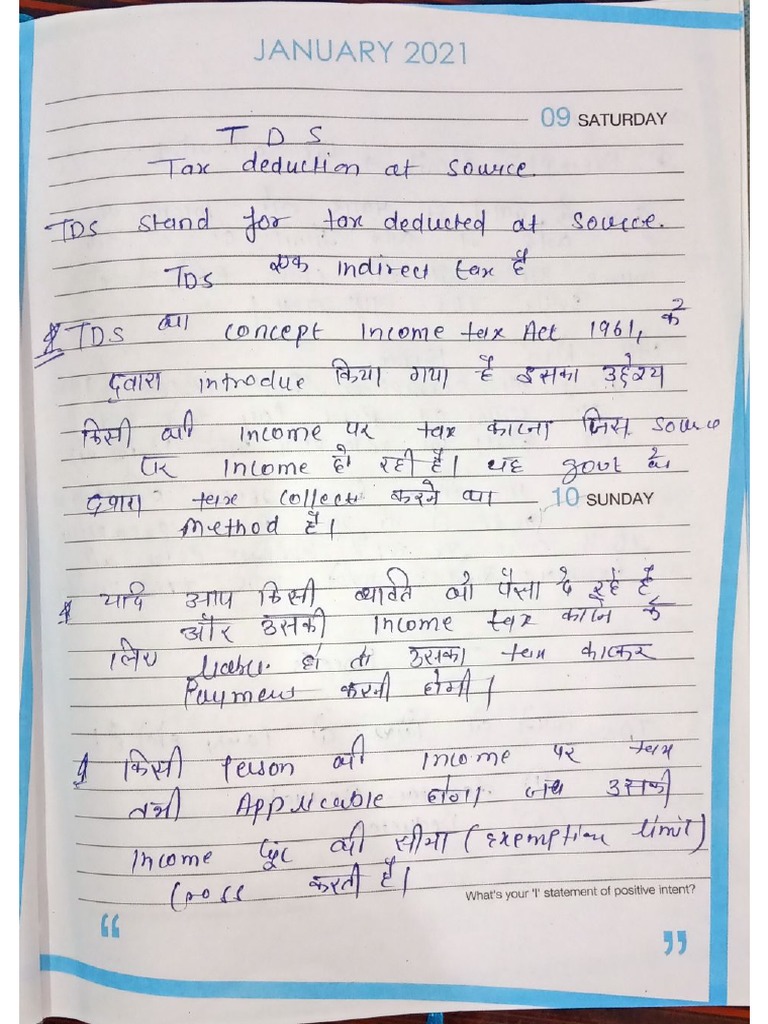 JANUARY 2021
09 SATURDAY
T D S
Tax deduction at source.
TDS stand for tax deducted at source.
TDS एक indirect tax है
TDS का concept Income tax Act 1961, के
द्वारा introdue किया गया है इसका उद्देश्य
किसी की income पर tax काटना जिस source
पर Income हो रही है। यह govt के
द्वारा tax collect करने का
10 SUNDAY
method है।
यदि आप किसी व्यक्ति को पैसा दे रहें है
और उसकी income tax काटने के
लिए liable हो तो उसका tax काटकर
Payment करनी होगी।
किसी Person की income पर tax
तभी Applicable होगा जब उसकी
Income छूट की सीमा (Exemption limit)
Cross करती है।
What's your 'I' statement of positive intent?